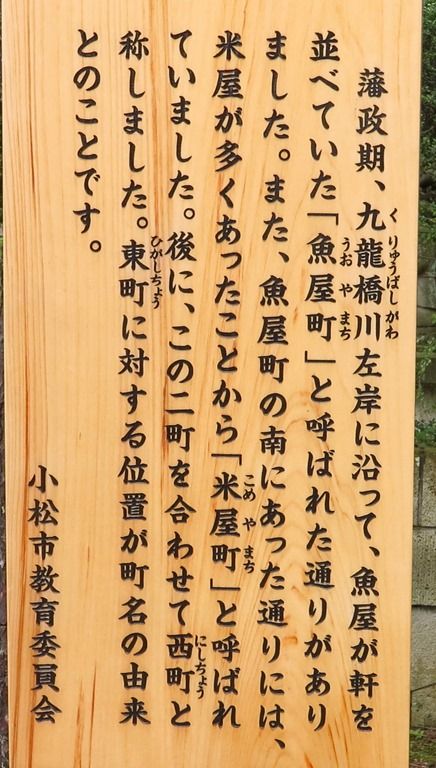 藩政期、九龍橋川左岸に沿って、魚屋が軒を
並べていた「魚屋町」と呼ばれた通りがあり
ました。また、魚屋町の南にあった通りには、
米屋が多くあったことから「米屋町」と呼ばれ
ていました。後に、この二町を合わせて西町と
称しました。東町に対する位置が町名の由来
とのことです。
小松市教育委員会
くりゅうばしがわ
うおやまち
こめやまち
にしちょう
ひがしちょう